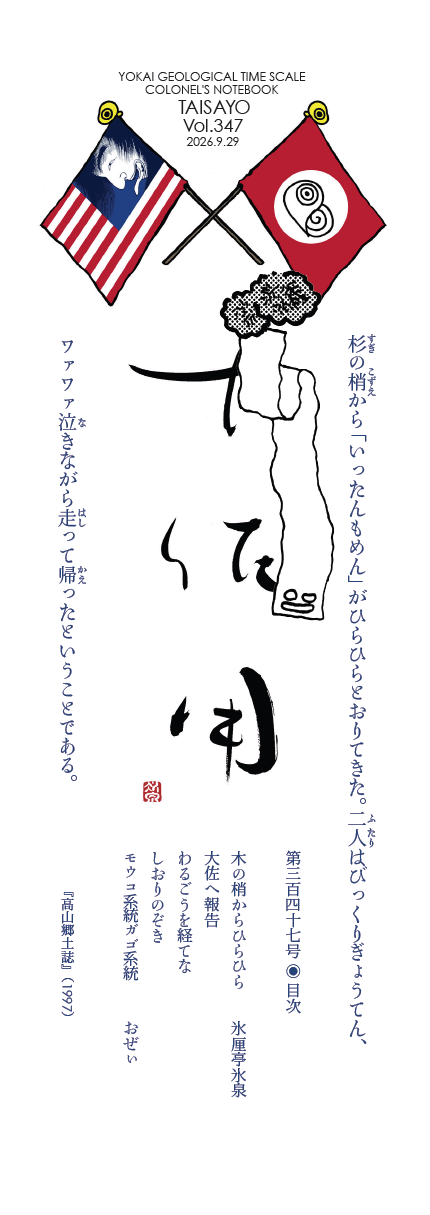 YOKAI GEOLOGICAL TIME SCALE
COLONEL'S NOTEBOOK
TAISAYO
Vol.347
2026.9.29
杉の梢から「いったんもめん」がひらひらとおりてきた。二人はびっくりぎょうてん、
ワァワァ泣きながら走って帰ったということである。
『高山郷土誌』(1997)
大佐用
第三百四十七号◉目次
木の梢からひらひら 氷厘亭氷泉
大佐へ報告
わるごうを経てな
しおりのぞき
モウコ系統ガゴ系統 おぜぃ